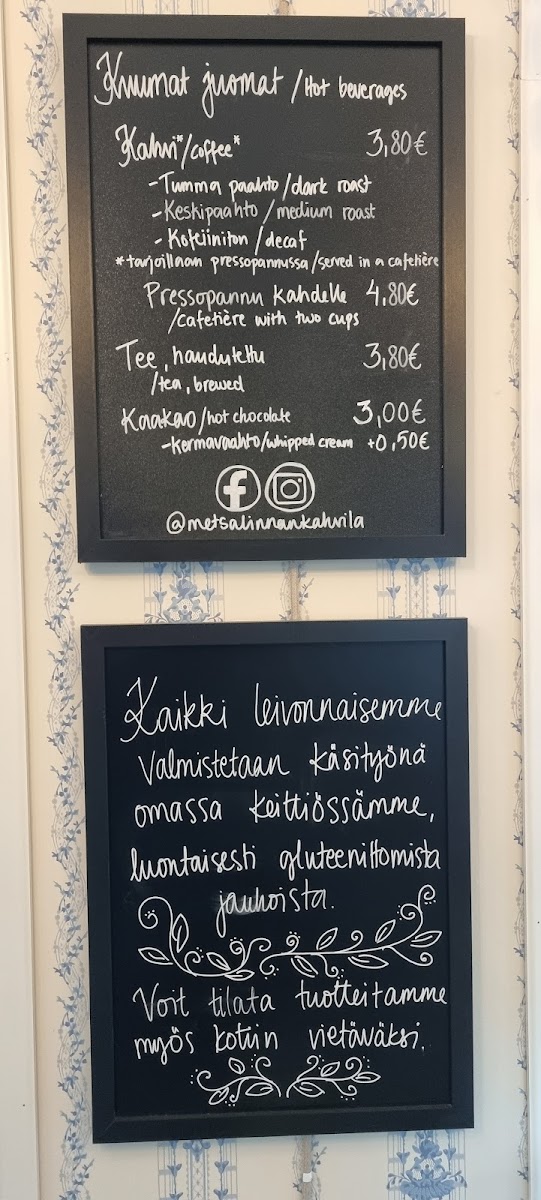 Kuumat juomat / Hot beverages
Kahvi*/coffee* 3,80€
- Tumma paahto / dark roast
- Keskipaahto / medium roast
- Kofeiiniton / decaf
*tarjoillaan pressopannussa / served in a cafetière
Pressopannu kahdelle 4,80€
/cafetière with two cups
Tee, haudutettu 3,80€
/tea, brewed
Kaakao / hot chocolate 3,00€
- kermavaahto / whipped cream +0,50€
@metsalinnankahvila
Kaikki leivonnaisemme
valmistetaan käsityönä
omassa keittiössämme,
luontaisesti gluteenittomista
jauhoista.
Voit tilata tuotteitamme
myös kotiin vietäväksi.